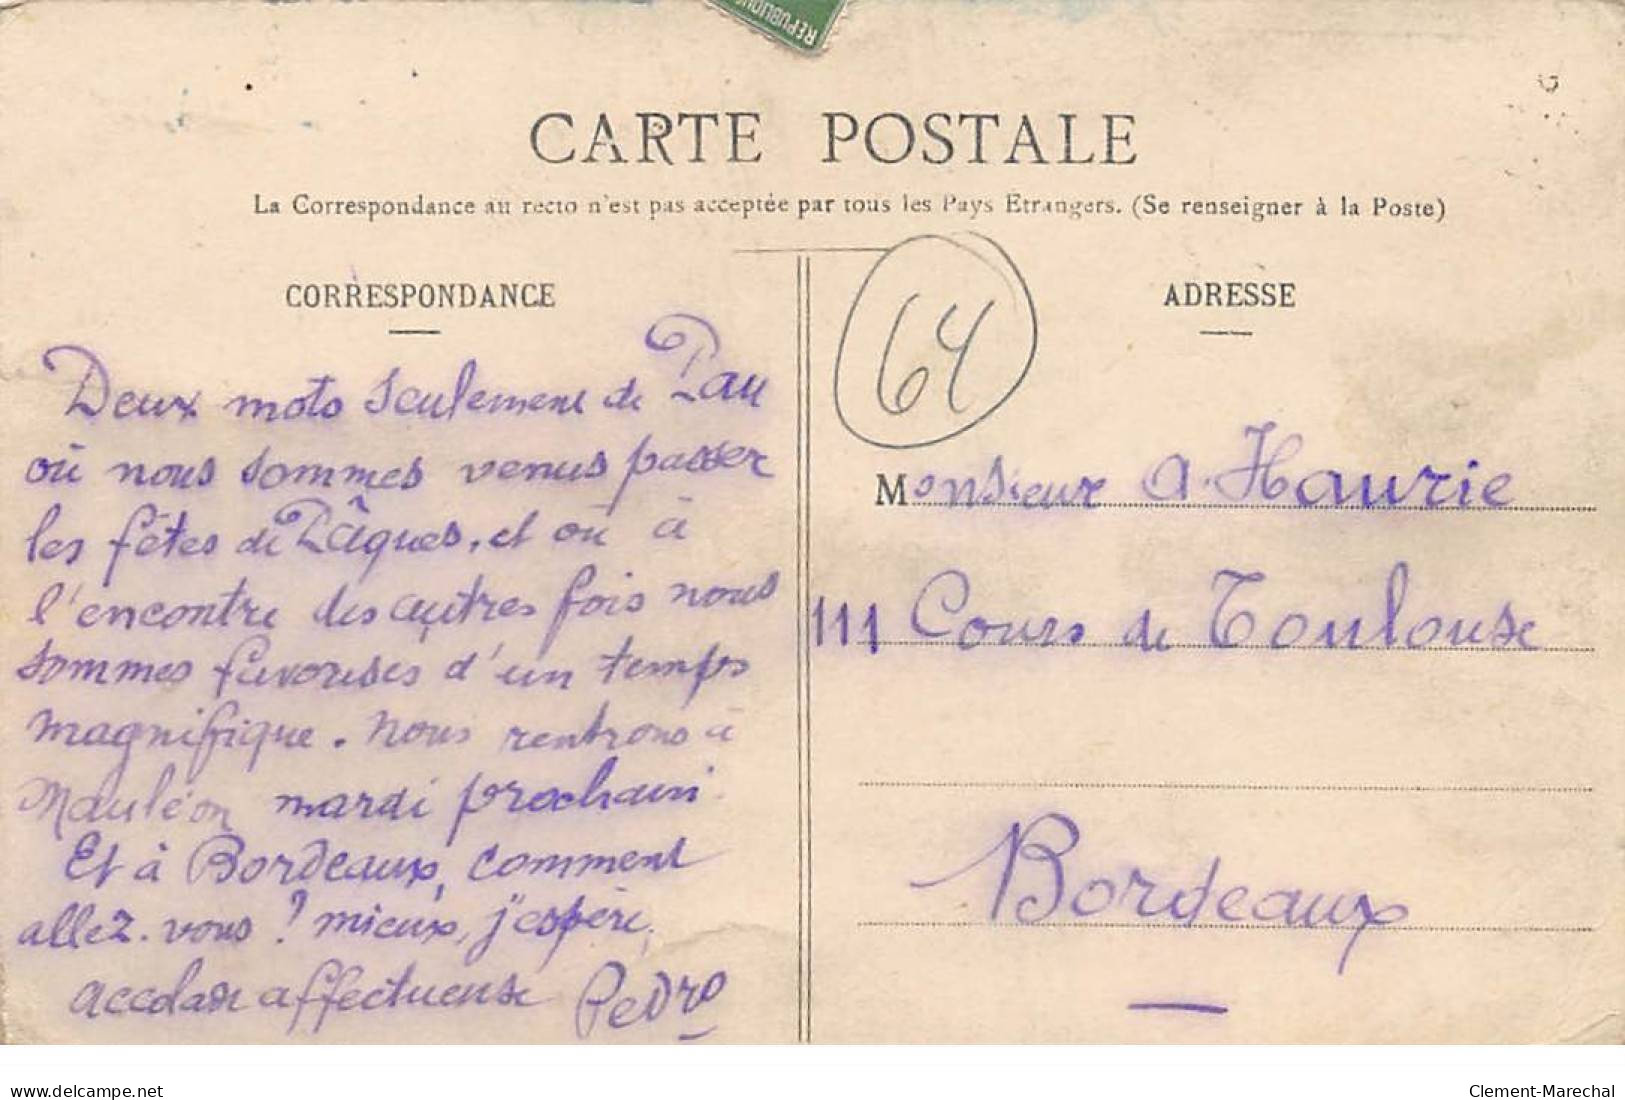 REPUBLIQUE
CARTE POSTALE
La Correspondance au recto n'est pas acceptée par tous les Pays Etrangers. (Se renseigner à la Poste)
CORRESPONDANCE
Deux mots seulement de Pau
où nous sommes venus passer
les fêtes de Pâques, et où à
l'encontre des autres fois nous
sommes favorisés d'un temps
magnifique. Nous rentrons à
Mauléon mardi prochain.
Et à Bordeaux, comment
allez-vous? mieux, j'espère.
accolade affectueuse Pedro
64
ADRESSE
Monsieur A. Haurie
111 Cours de Toulouse
Bordeaux
delcampe.net
Clement-Marechal